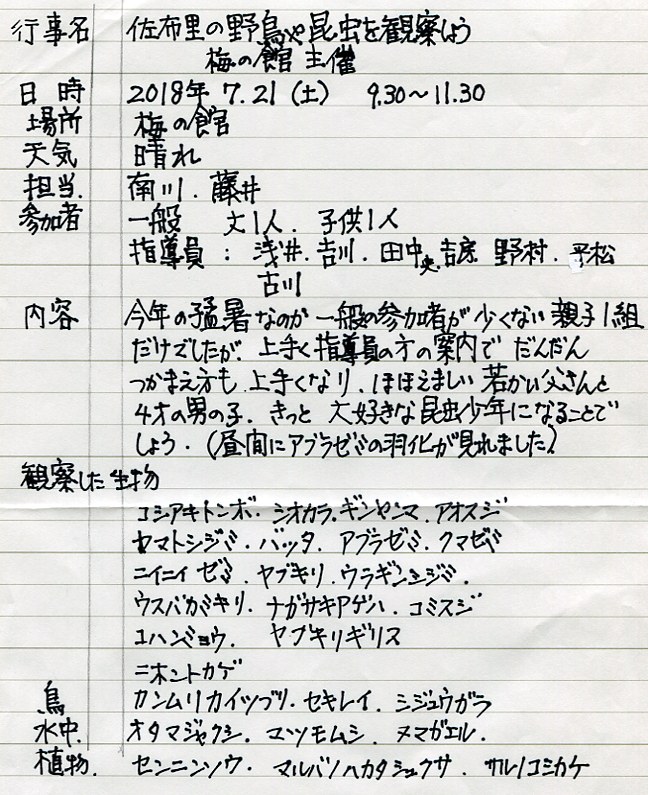 行事名 佐布里の野鳥や昆虫を観察しよう
梅の館 主催
日時 2018年 7.21(土) 9.30～11.30
場所 梅の館
天気 晴れ
担当 南川. 藤井
参加者 一般 大1人. 子供1人
指導員: 浅井. 吉川. 田中央 吉原 野村. 平松
古川
内容 今年の猛暑なのか 一般の参加者が少くない 親子1組
だけでしたが、上手く指導員の方の案内で だんだん
つかまえ方も 上手くなり、ほほえましい 若かい父さんと
4才の男の子. きっと 大好きな昆虫少年になることで
しょう. (昼間にアブラゼミの羽化が見れました)
観察した生物
コシアキトンボ. シオカラ. ギンヤンマ. アオスジ
ヤマトシジミ. バッタ. アブラゼミ. クマゼミ
ニイニイゼミ. ヤブキリ. ウラギンシジミ.
ウスバカミキリ. ナガサキアゲハ. コミスジ
コハンミョウ. ヤブキリギリス
ニホントカゲ
鳥 カンムリカイツブリ. セキレイ. シジュウガラ
水中. オタマジャクシ. マツモムシ. ヌマガエル.
植物. センニンソウ. マルバノハカタシュクサ. サルノコミカケ